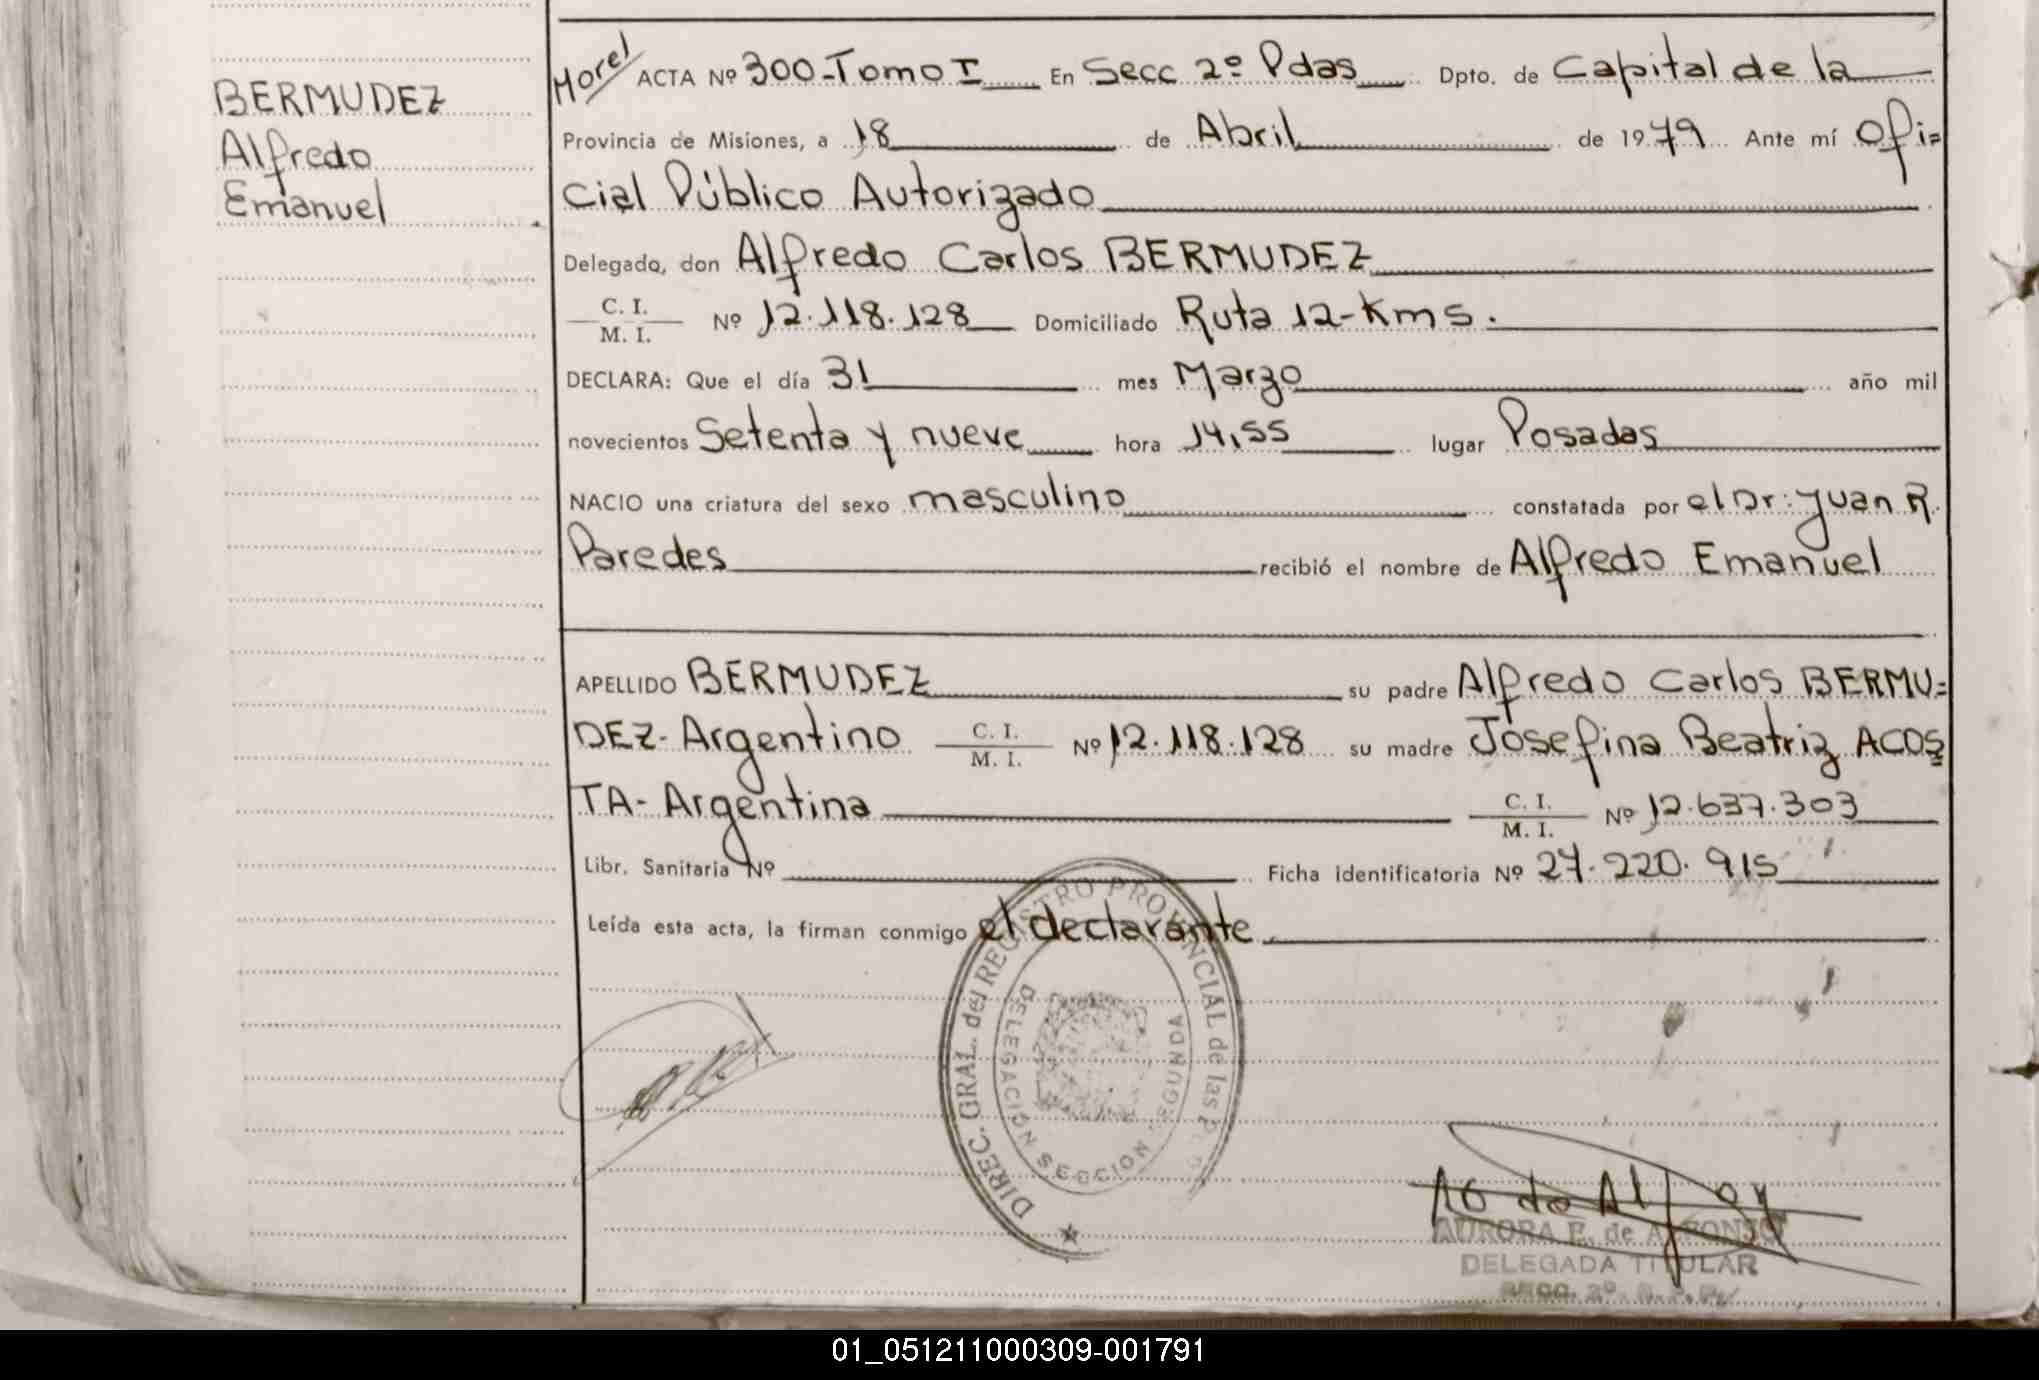 BERMUDEZ
Alfredo
Emanuel
Morel ACTA Nº 300-Tomo I En Secc 2º Pdas Dpto. de Capital de la
Provincia de Misiones, a 18 de Abril de 1979 Ante mí Ofi=
cial Público Autorizado
Delegado, don Alfredo Carlos BERMUDEZ
C. I.
M. I. Nº 12.118.128 Domiciliado Ruta 12-Km5.
DECLARA: Que el día 31 mes Marzo año mil
novecientos Setenta y nueve hora 14,55 lugar Posadas
NACIO una criatura del sexo masculino constatada por el Dr: Juan R.
Paredes recibió el nombre de Alfredo Emanuel
APELLIDO BERMUDEZ su padre Alfredo Carlos BERMU=
DEZ-Argentino C. I. M. I. Nº 12.118.128 su madre Josefina Beatriz ACOS
TA-Argentina C. I. M. I. Nº 12.637.303
Libr. Sanitaria Nº Ficha identificatoria Nº 27.220.915
Leída esta acta, la firman conmigo el declarante.
DIREC. GRAL. del REGISTRO PROVINCIAL de las
DELEGACION SECCION SEGUNDA
AURORA E. de ALFONSO
DELEGADA TITULAR
SECC. 2º
01_051211000309-001791